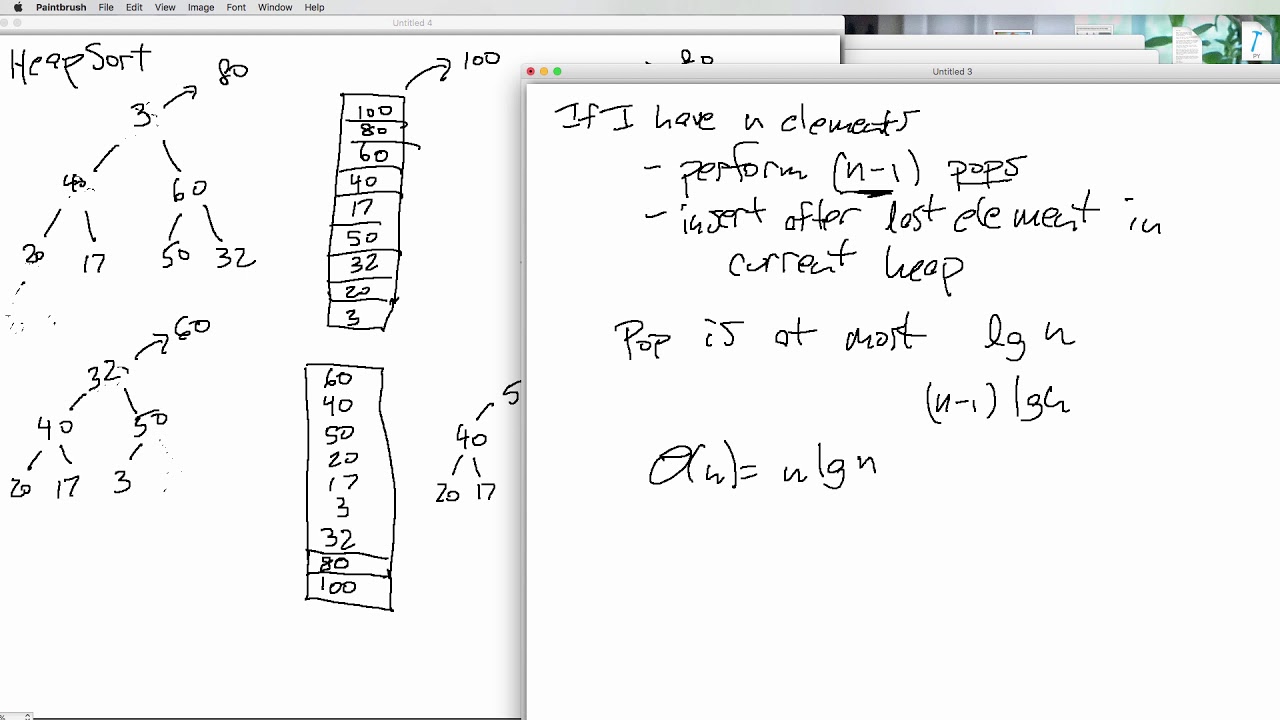 Paintbrush File Edit View Image Font Window Help
Untitled 4
HeapSort
80
3
40 60
20 17 50 32
100
100
80
60
40
17
50
32
20
3
60
32
40 50
20 17 3
60
40
50
20
17
3
32
80
100
5
40
20 17
PY
Untitled 3
If I have n elements
- perform (n-1) pops
- insert after last element in
current heap
Pop is at most lg n
(n-1) lg n
θ(n) = n lg n